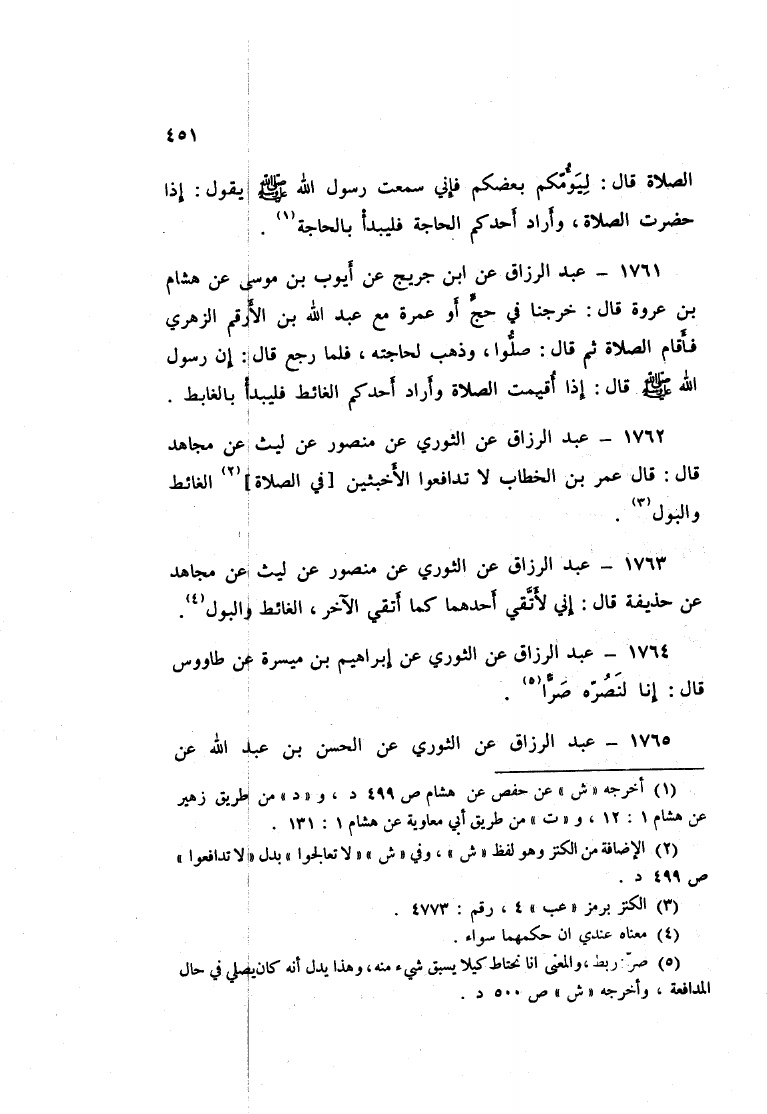 ٤٥١
الصلاة قال : لِيَؤُمّكم بعضكم فإني سمعت رسول الله ﷺ يقول : إذا
حضرت الصلاة ، وأراد أحدكم الحاجة فليبدأ بالحاجة(١) .
١٧٦١ – عبد الرزاق عن ابن جريج عن أيوب بن موسى عن هشام
بن عروة قال : خرجنا في حجٍّ أو عمرة مع عبد الله بن الأرقم الزهري
فأقام الصلاة ثم قال : صلُّوا ، وذهب لحاجته ، فلما رجع قال : إن رسول
الله ﷺ قال : إذا أُقيمت الصلاة وأراد أحدكم الغائط فليبدأ بالغابط .
١٧٦٢ – عبد الرزاق عن الثوري عن منصور عن ليث عن مجاهد
قال : قال عمر بن الخطاب لا تدافعوا الأخبثين [في الصلاة](٢) الغائط
والبول(٣) .
١٧٦٣ – عبد الرزاق عن الثوري عن منصور عن ليث عن مجاهد
عن حذيفة قال : إني لأَتَّقي أحدهما كما أتقي الآخر ، الغائط والبول(٤) .
١٧٦٤ – عبد الرزاق عن الثوري عن إبراهيم بن ميسرة عن طاووس
قال : إنا لنَصُرّه صَرًّا(٥) .
١٧٦٥ – عبد الرزاق عن الثوري عن الحسن بن عبد الله عن
(١) أخرجه « ش » عن حفص عن هشام ص ٤٩٩ د ، و « د » من طريق زهير
عن هشام ١ : ١٢ ، و « ت » من طريق أبي معاوية عن هشام ١ : ١٣١ .
(٢) الإضافة من الكنز وهو لفظ « ش » ، وفي « ش » « لا تعالجوا » بدل « لا تدافعوا »
ص ٤٩٩ د .
(٣) الكنز برمز « عب » ٤ ، رقم : ٤٧٧٣ .
(٤) معناه عندي ان حكمهما سواء .
(٥) صرّ : ربط ، والمعنى انا نحتاط كيلا يسبق شيء منه ، وهذا يدل أنه كان يصلي في حال
المدافعة ، وأخرجه « ش » ص ٥٠٠ د .